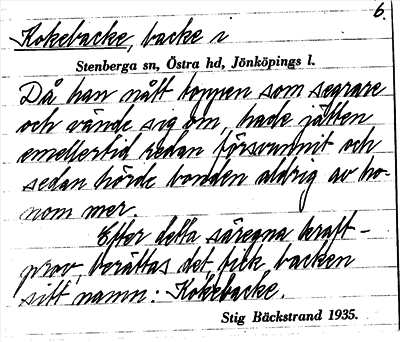 6.
Kokebacke, backe i
Stenberga sn, Östra hd, Jönköpings l.
Då han nått toppen som segrare
och vände sig om, hade jätten
emellertid redan försvunnit och
sedan hörde bonden aldrig av ho-
nom mer.
Efter detta säregna kraft-
prov, berättas det, fick backen
sitt namn: Kokebacke.
Stig Bäckstrand 1935.